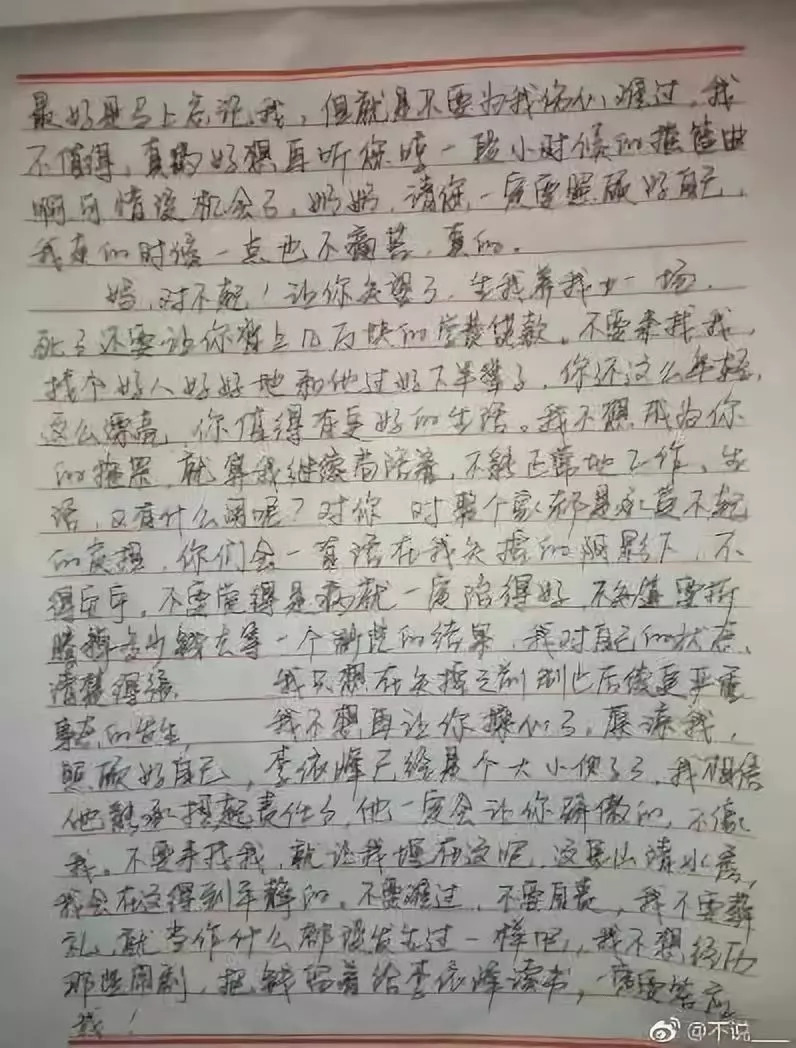 最好是马上忘记我，但就是不要为我伤心难过，我
不值得，真的好想再听你哼一段小时候的摇篮曲
啊可惜没机会了，奶奶，请你一定要照顾好自己，
我走的时候一点也不痛苦，真的。
妈，对不起！让你失望了，生我养我廿一场，
死了还要让你背上几万块的学费贷款。不要来找我，
找个好人好好地和他过好下半辈子，你还这么年轻，
这么漂亮，你值得有更好的生活。我不想成为你
的拖累，就算我继续苟活着，不能正常地工作、生
活，又有什么用呢？对你 对整个家都是永远不起
的负担，你们会一直活在我失控的阴影下，不
得安宁。不要觉得是病就一定治得好，不知道要折
腾掉多少钱去等一个渺茫的结果，我对自己的状态
清楚得很 我只想在失控之前制止后续更严重
事态的发生， 我不想再让你操心了。原谅我，
照顾好自己，李依峰已经是个大小伙子了，我相信
他能承担起责任了，他一定会让你骄傲的，不像
我。不要来找我，就让我埋在这吧，这里山清水秀，
我会在这得到平静的。不要难过，不要自责，我不要葬
礼，就当作什么都没发生过一样吧，我不想经历
那些闹剧，把钱留着给李依峰读书，一定要答应
我！
@不说___